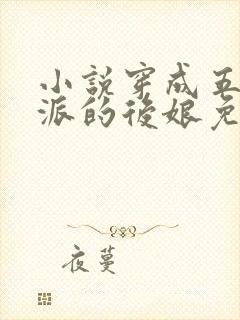 小說穿成五
派的後娘免
夜蔓